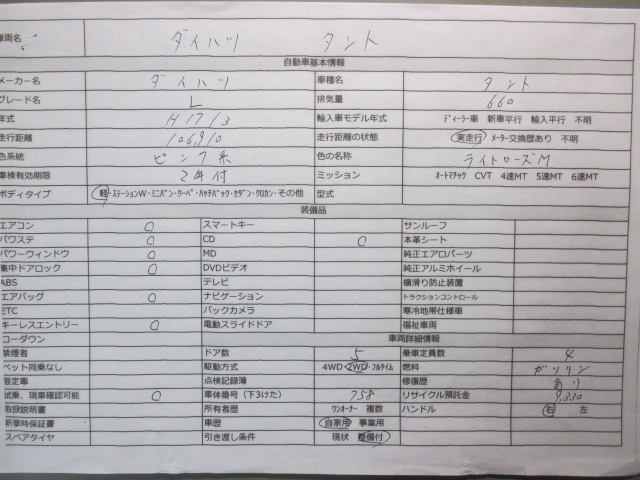 車両名 ダイハツ タント
自動車基本情報
メーカー名 ダイハツ 車種名 タント
グレード名 L 排気量 660
年式 H17/3 輸入車モデル年式 ディーラー車 新車平行 輸入平行 不明
走行距離 106,910 走行距離の状態 実走行 メーター交換歴あり 不明
色系統 ピンク系 色の名称 ライトローズM
車検有効期限 2年付 ミッション オートマチック CVT 4速MT 5速MT 6速MT
ボディタイプ 軽・ステーションW・ミニバン・クーペ・ハッチバック・セダン・クロカン・その他 型式
装備品
エアコン ○ スマートキー サンルーフ
パワステ ○ CD ○ 本革シート
パワーウィンドウ ○ MD 純正エアロパーツ
集中ドアロック ○ DVDビデオ 純正アルミホイール
ABS テレビ 横滑り防止装置
エアバッグ ○ ナビゲーション トラクションコントロール
ETC バックカメラ 寒冷地帯仕様車
キーレスエントリー ○ 電動スライドドア 福祉車両
ローダウン 車両詳細情報
禁煙者 ドア数 5 乗車定員数 4
ペット同乗なし 駆動方式 4WD・2WD・フルタイム 燃料 ガソリン
限定車 点検記録簿 修復歴 あり
試乗、現車確認可能 ○ 車体番号（下3けた） 758 リサイクル預託金 9,330
取扱説明書 所有者歴 ワンオーナー 複数 ハンドル 右 左
新車時保証書 車歴 自家用 事業用
スペアタイヤ 引き渡し条件 現状 整備付